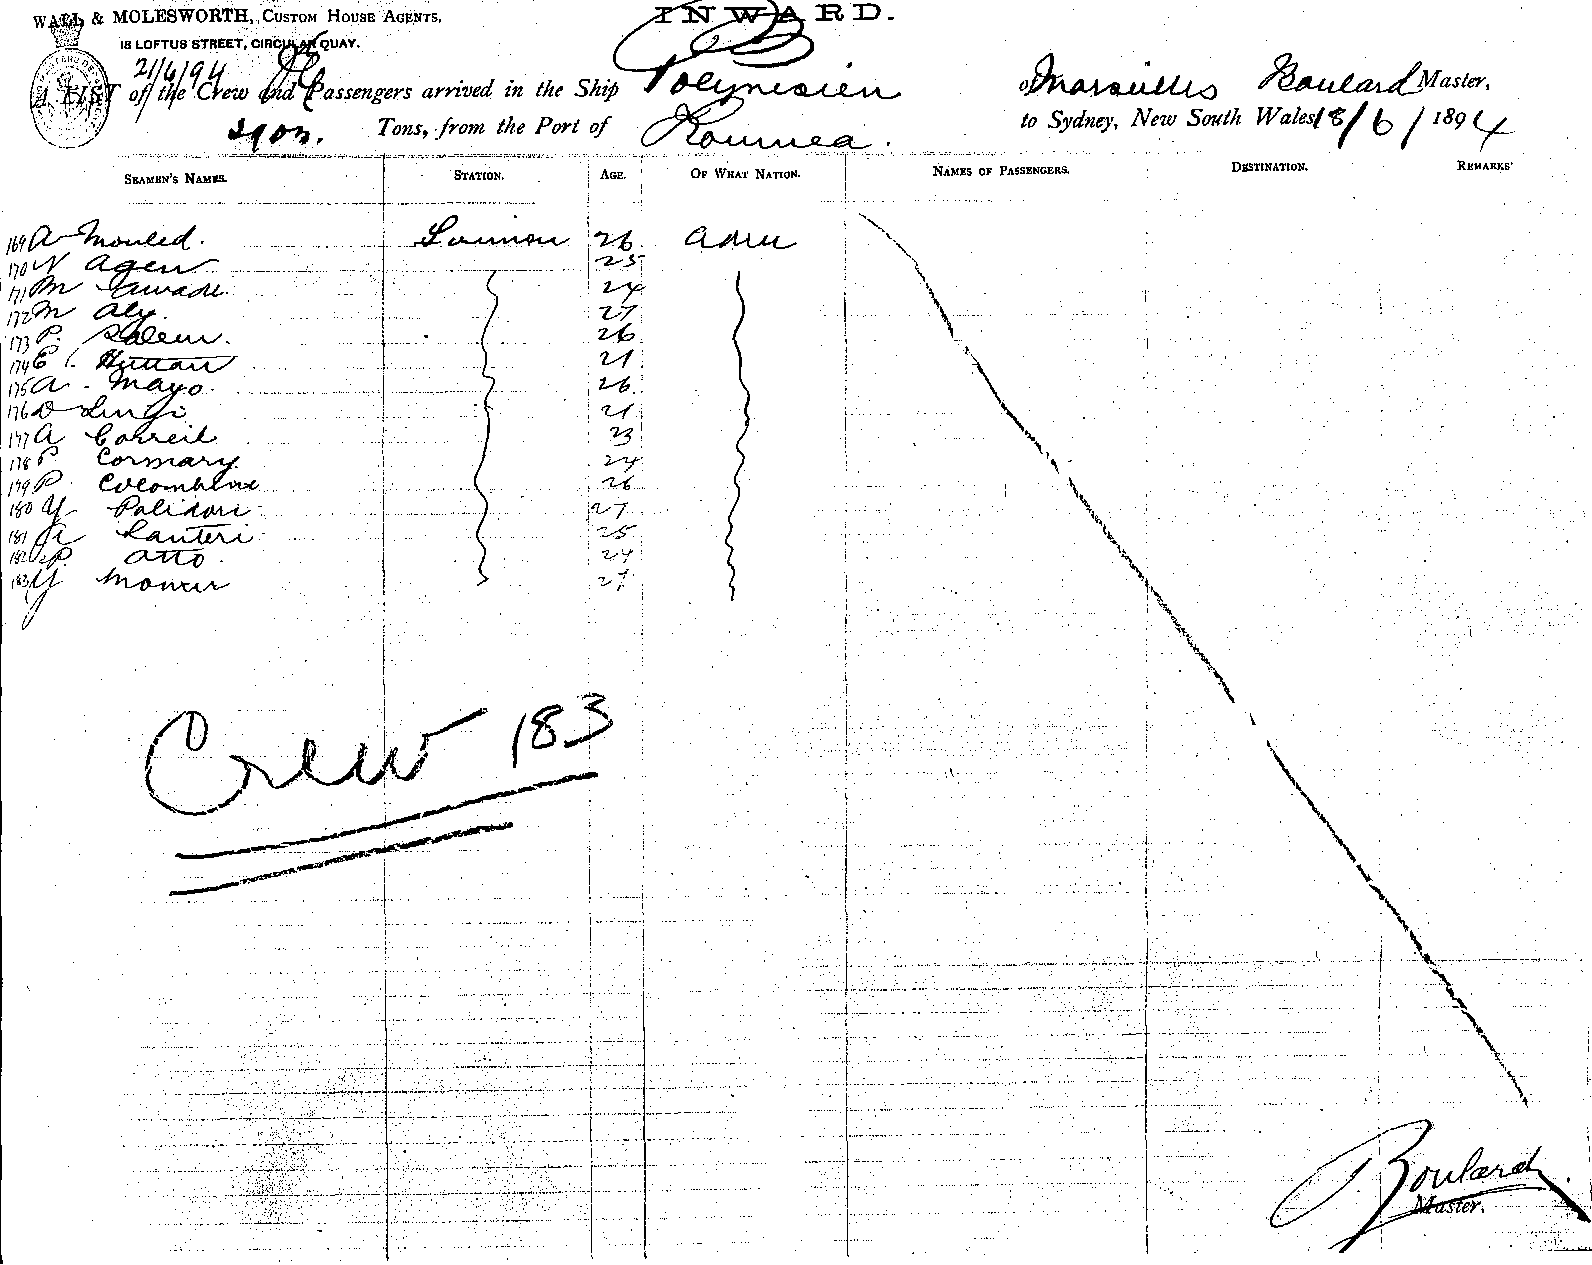 WALL & MOLESWORTH, CUSTOM HOUSE AGENTS,
INWARD.
18 LOFTUS STREET, CIRCULAR QUAY.
21/6/94
A LIST of the Crew and Passengers arrived in the Ship Polynesien of Marseilles Boulard Master,
Tons, from the Port of Noumea. to Sydney, New South Wales 18/6/1894
SEAMEN'S NAMES. STATION. AGE. OF WHAT NATION. NAMES OF PASSENGERS. DESTINATION. REMARKS
169 A Mouled. 26
170 Agen 25
171 M 24
172 M Aly. 27
173 P. Salem. 26
174 E. 21
175 A. Mayo. 26
176 21
177 A Correil 23
178 P Cormary 24
179 P. Colombine 26
180 Polidori 27
181 A Lanteri 25
182 P. Otto 24
183 27
Crew 183
Boulard
Master.